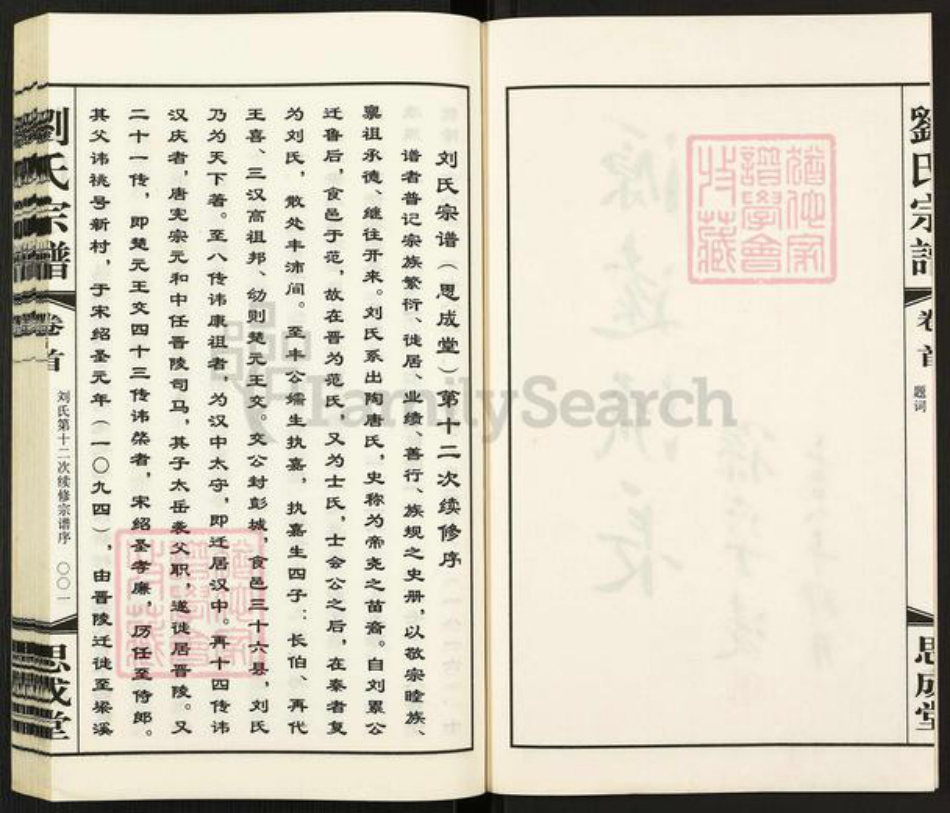 劉氏宗譜
卷首
題词
思成堂
刘氏宗谱（思成堂）第十二次续修序
谱者普记宗族繁衍、徙居、业绩、善行、族规之史册，以敬宗睦族、
禀祖承德、继往开来。刘氏系出陶唐氏，史称为帝尧之苗裔。自刘累公
迁鲁后，食邑于范，故在晋为范氏，又为士氏，士会公之后，在秦者复
为刘氏，散处丰沛间。至丰公嬬生执嘉，执嘉生四子：长伯、再代
王喜、三汉高祖邦、幼则楚元王交。交公封彭城，食邑三十六县，刘氏
乃为天下著。至八传讳康祖者，为汉中太守，即迁居汉中。再十四传讳
汉庆者，唐宪宗元和中任晋陵司马，其子太岳袭父职，遂徙居晋陵。又
二十一传，即楚元王交四十三传讳荣者，宋绍圣孝廉，历任至侍郎。
其父讳桃号新村，于宋绍圣元年（一〇九四），由晋陵迁徙至梁溪
劉氏宗譜
卷首
刘氏第十二次续修宗谱序
〇〇一
思成堂
FamilySearch